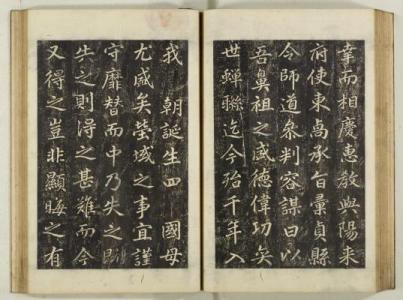 幸而相慶惠敎與陽來
府使東卨承旨彙貞縣
令師道參判容謀曰以
吾鼻祖之盛德偉功矣
世蟬聯迄今殆千年入
我 朝誕生四 國母
尤盛矣塋域之事宜謹
守靡替而中乃失之
失之則得之甚難而今
又得之豈非顯晦之有